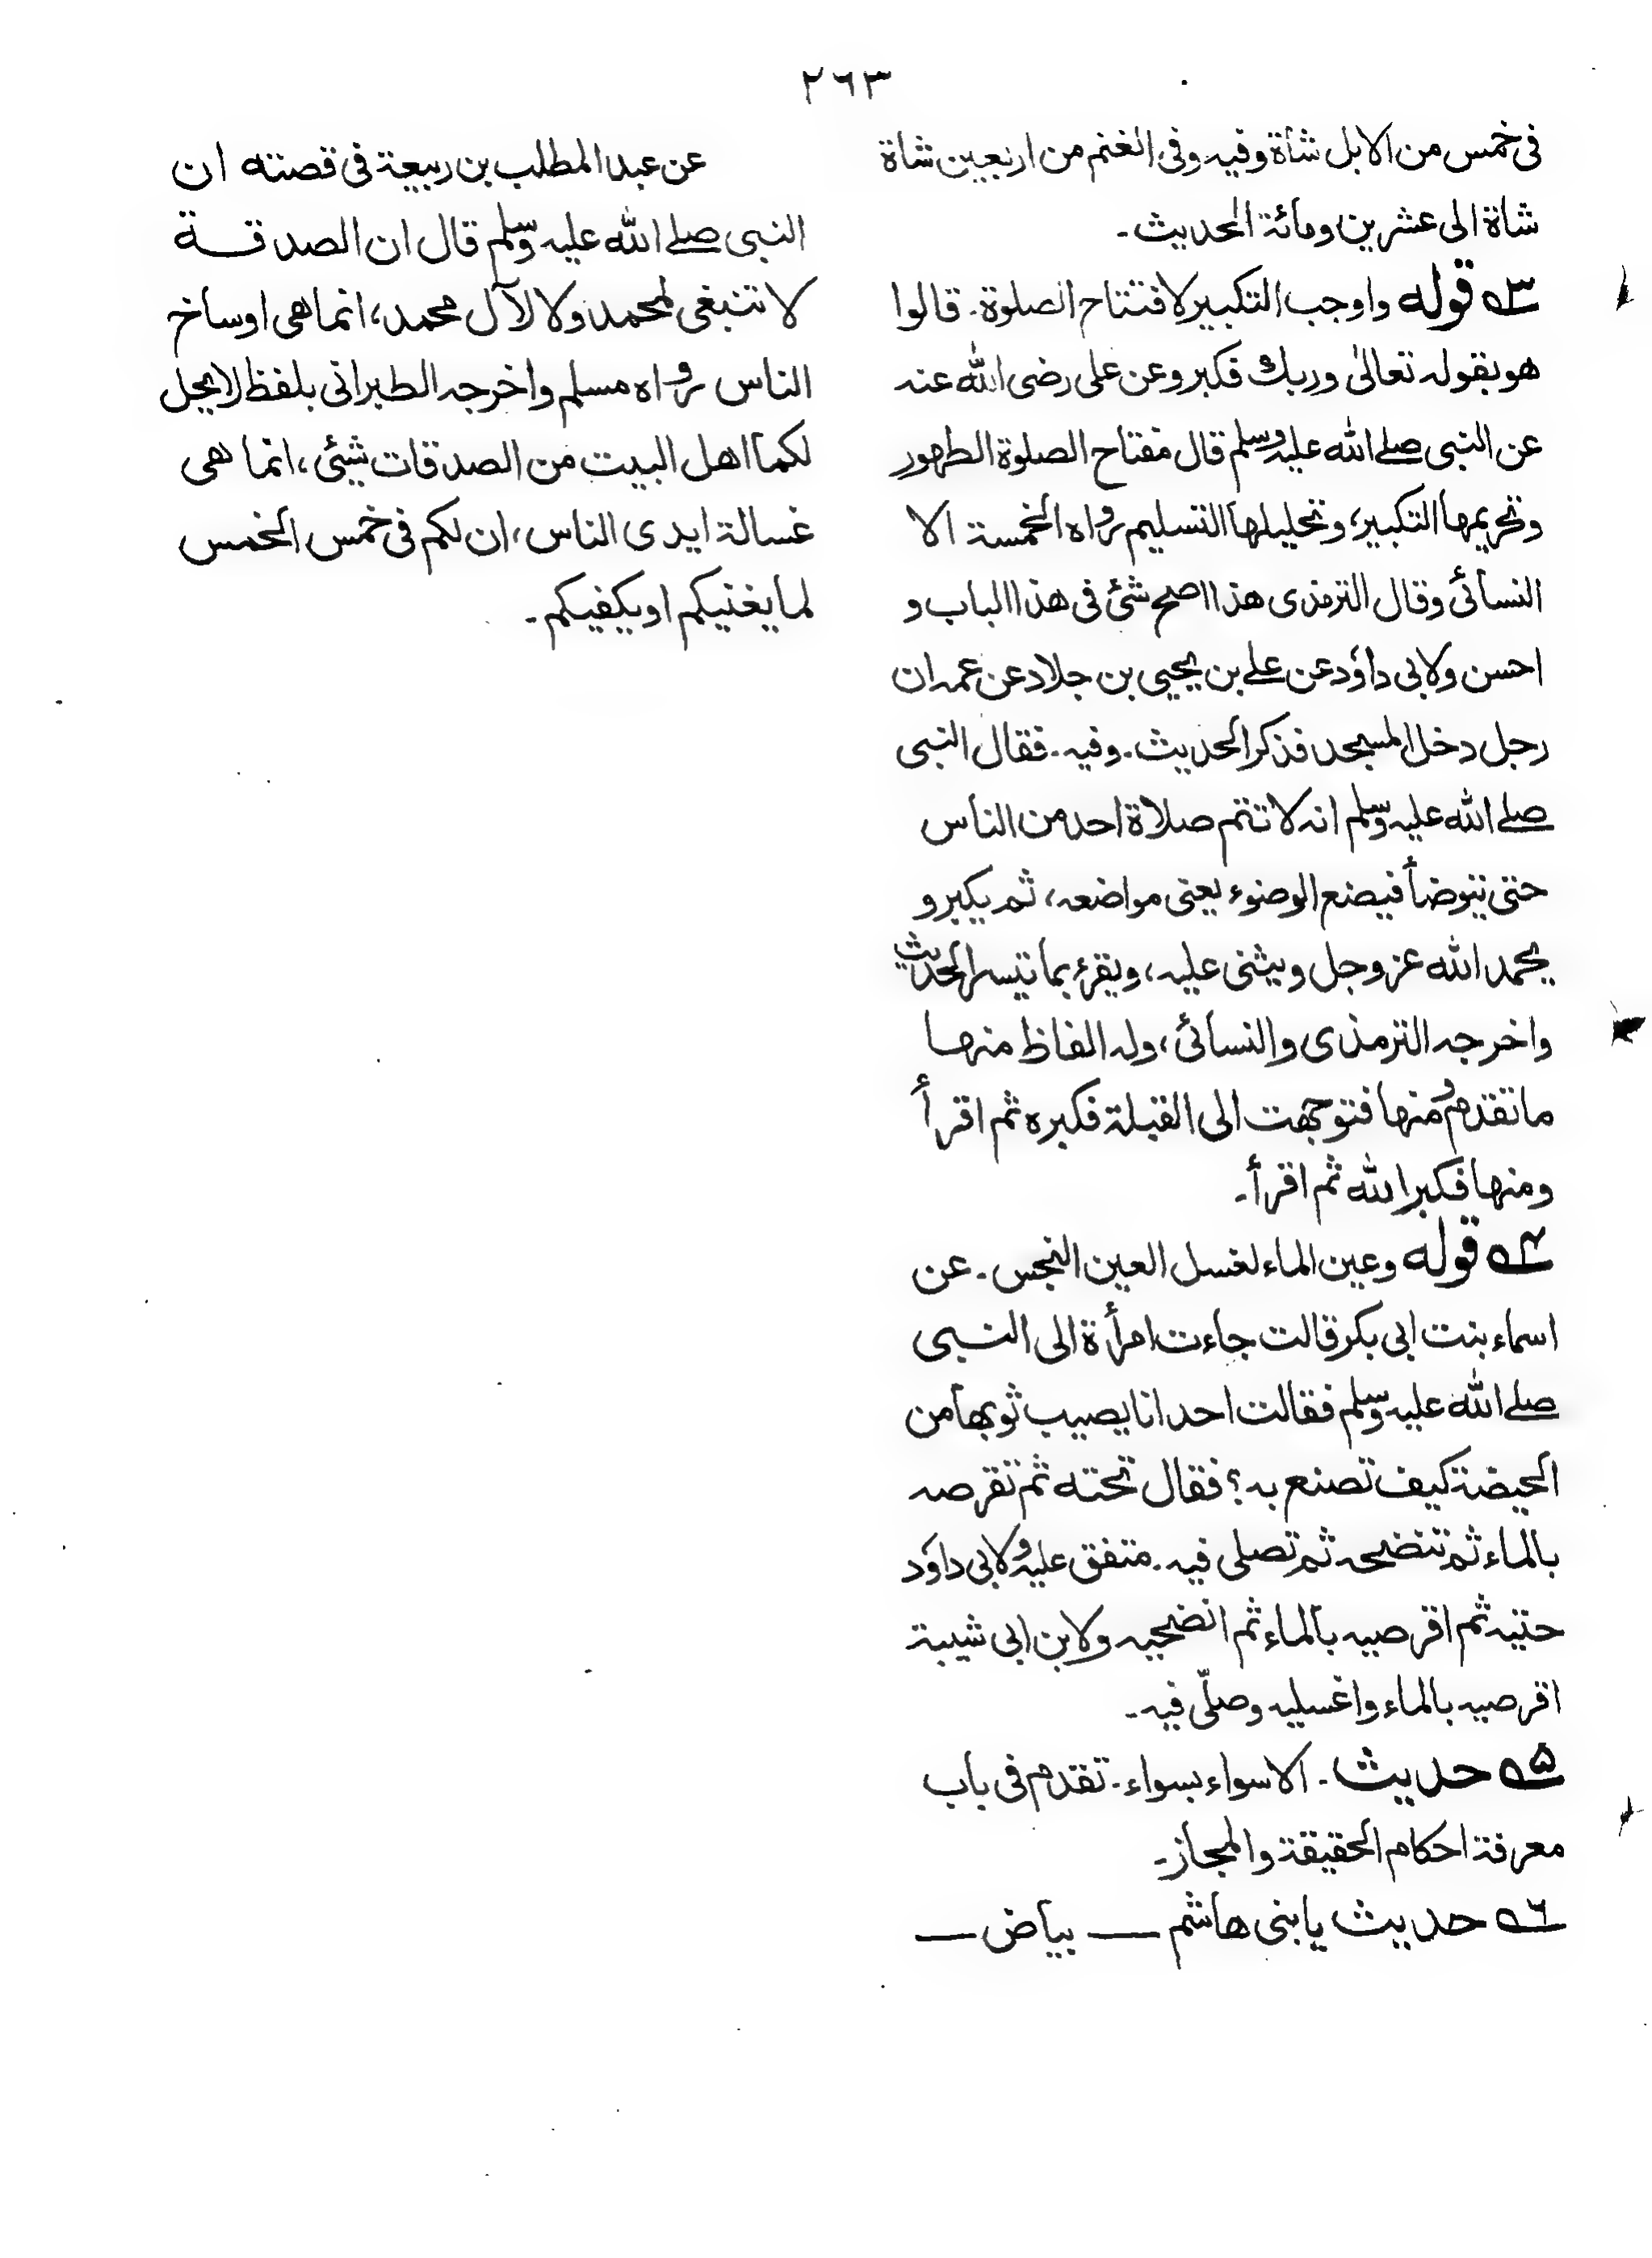 ٢٦٣
فى خمس من الابل شاة وفيه وفى الغنم من اربعين شاة
شاة الى عشرين ومائة الحديث۔
۳ه قوله واوجب التكبير لافتتاح الصلوة۔ قالوا
هو بقوله تعالىٰ وربك فكبر وعن على رضى الله عنه
عن النبى صلے الله عليه وسلم قال مفتاح الصلوة الطهور
وتحريمها التكبير، وتحليلها التسليم رواه الخمسة الا
النسائى وقال الترمذى هذا اصح شئ فى هذا الباب و
احسن ولابى داؤد عن علے بن يحيى بن جلاد عن عمه ان
رجل دخل المسجد فذكر الحديث۔ وفيه۔ فقال النبى
صلے الله عليه وسلم انه لا تتم صلاة احد من الناس
حتى يتوضأ فيضع الوضوء يعنى مواضعه، ثم يكبر و
يحمد الله عز وجل ويثنى عليه، ويقرء بما تيسر الحديث
واخرجه الترمذى والنسائى، وله الفاظ منها
ما تقدم ومنها فتوجهت الى القبلة فكبره ثم اقرأ
ومنها فكبر الله ثم اقرأ۔
۴ه قوله وعين الماء لغسل العين النجس۔ عن
اسماء بنت ابى بكر قالت جاءت امرأة الى النبى
صلے الله عليه وسلم فقالت احدانا يصيب ثوبها من
الحيضة كيف تصنع به؟ فقال تحته ثم تقرصه
بالماء ثم تنضحه ثم تصلى فيه۔ متفق عليه ولابى داؤد
حتيه ثم اقرصيه بالماء ثم انضحيه ولابن ابى شيبة
اقرصيه بالماء واغسليه وصلّى فيه۔
۵ه حديث۔ الا سواء بسواء۔ تقدم فى باب
معرفة احكام الحقيقة والمجاز۔
۶ه حديث يا بنى هاشم — بياض —
عن عبد المطلب بن ربيعة فى قصته ان
النبى صلے الله عليه وسلم قال ان الصدقة
لا تنبغى لمحمد ولا لآل محمد، انما هى اوساخ
الناس رواه مسلم واخرجه الطبرانى بلفظ لا يحل
لكما اهل البيت من الصدقات شيئى، انما هى
غسالة ايدى الناس، ان لكم فى خمس الخمس
لما يغنيكم او يكفيكم۔